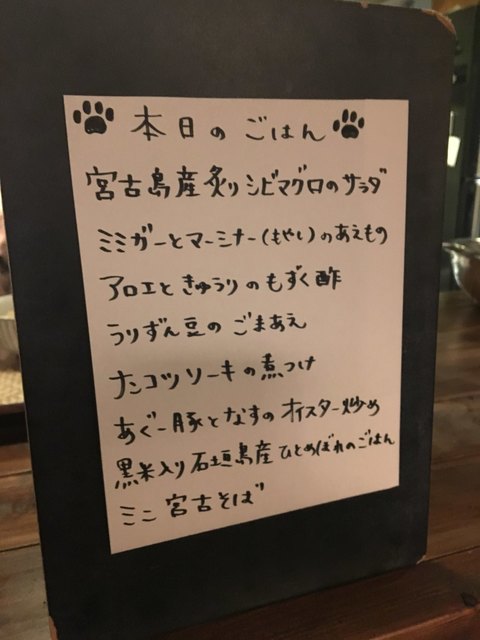 本日のごはん
宮古島産炙りシビマグロのサラダ
ミミガーとマーミナー(もやし)のあえもの
アロエときゅうりのもずく酢
うりずん豆のごまあえ
ナンコツソーキの煮つけ
あぐー豚となすのオイスター炒め
黒米入り石垣島産ひとめぼれのごはん
ミニ宮古そば